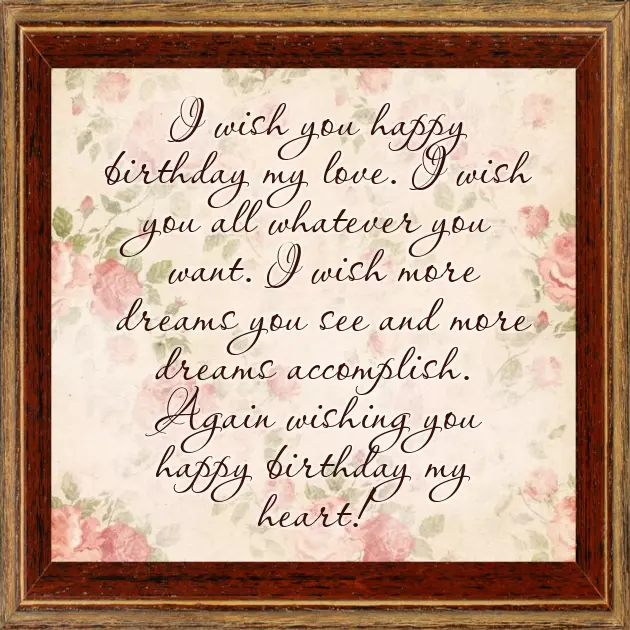 I wish you happy
birthday my love. I wish
you all whatever you
want. I wish more
dreams you see and more
dreams accomplish.
Again wishing you
happy birthday my
heart!